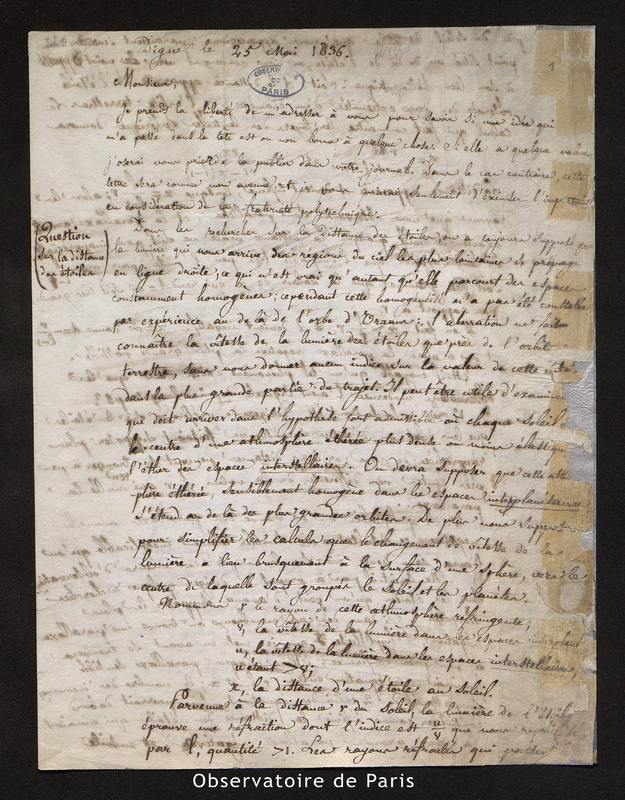 Digne le 25 Mai 1836.
OBSERVATOIRE
DE
PARIS
1
Monsieur,
Je prends la liberté de m'adresser à vous pour savoir si une idée qui
m'a passé dans la tête est ou non bonne à quelque chose. Si elle a quelque
j'oserai vous prier de la publier dans votre journal. Dans le cas contraire, cette
lettre sera comme non avenue et je vous prierai seulement d'excuser
en considération de la fraternité polytechnique.
Question
sur la distance
des étoiles
Dans les recherches sur la distance des étoiles, on a toujours supposé
la lumière qui nous arrive des régions du ciel les plus lointaines se propage
en ligne droite; ce qui n'est vrai qu'autant qu'elle parcourt des espaces
constamment homogènes; cependant cette homogénéité n'a pas été constatée
par expérience au delà de l'orbe d'Uranus: l'aberration ne fait
connaître la vîtesse de la lumière des étoiles que près de l'orbite
terrestre, sans nous donner aucun indice sur la valeur de cette
dans la plus grande partie du trajet. Il peut être utile d'examiner
qui doit arriver dans l'hypothèse fort admissible où chaque soleil
le centre d'une athmosphère éthérée plus dense ou moins élastique
l'éther des espaces interstellaires. On devra supposer que cette
sphère éthérée, sensiblement homogène dans les espaces interplanétaires
s'étend au delà des plus grandes orbites. De plus nous
pour simplifier les calculs que le changement de vîtesse de la
lumière a lieu brusquement à la surface d'une sphère, vers le
centre de laquelle sont groupés le soleil et les planètes.
Nommons r le rayon de cette athmosphère réfringente;
v, la vîtesse de la lumière dans les espaces
u, la vîtesse de la lumière dans les espaces interstellaires,
u étant > v;
x, la distance d'une étoile au soleil.
Parvenue à la distance r du soleil, la lumière de
éprouve une réfraction dont l'indice est u/v que nous
par l, quantité >1. Les rayons réfractés qui
Observatoire de Paris